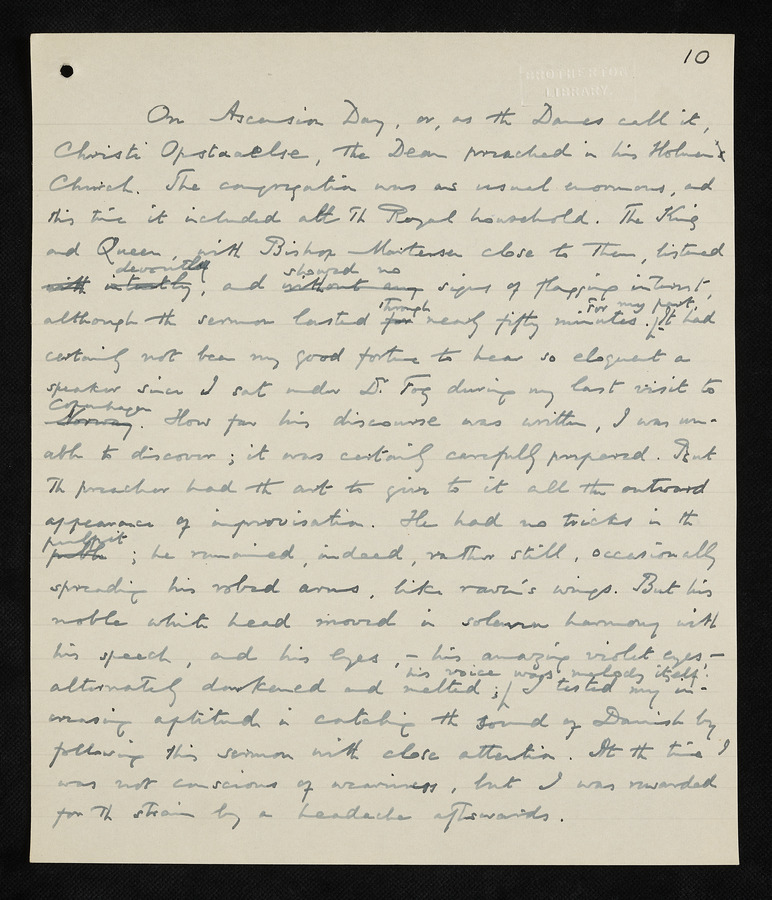 10
BROTHERTON
LIBRARY.
On Ascension Day, or, as the Danes call it,
Christi Opstaaelse, the Dean preached in his Holmen's
Church. The congregation was as usual enormous, and
this time it included all the Royal household. The King
and Queen, with Bishop Martensen close to them, listened
devoutly showed no
with intently, and without any signs of flagging interest,
through For my part,
although the sermon lasted for nearly fifty minutes. It had
certainly not been my good fortune to hear so eloquent a
speaker since I sat under Dr. Fog during my last visit to
Copenhagen
Norway. How far his discourse was written, I was un-
able to discover; it was certainly carefully prepared. But
the preacher had the art to give to it all the outward
appearance of improvisation. He had no tricks in the
pulpit
; he remained, indeed, rather still, occasionally
spreading his robed arms, like raven's wings. But his
noble white head moved in solemn harmony with
his speech, and his eyes, – his amazing violet eyes, –
his voice was melody itself.
alternately darkened and melted; I tested my in-
creasing aptitude in catching the sound of Danish by
following this sermon with close attention. At the time I
was not conscious of weariness, but I was rewarded
for the strain by a headache afterwards.